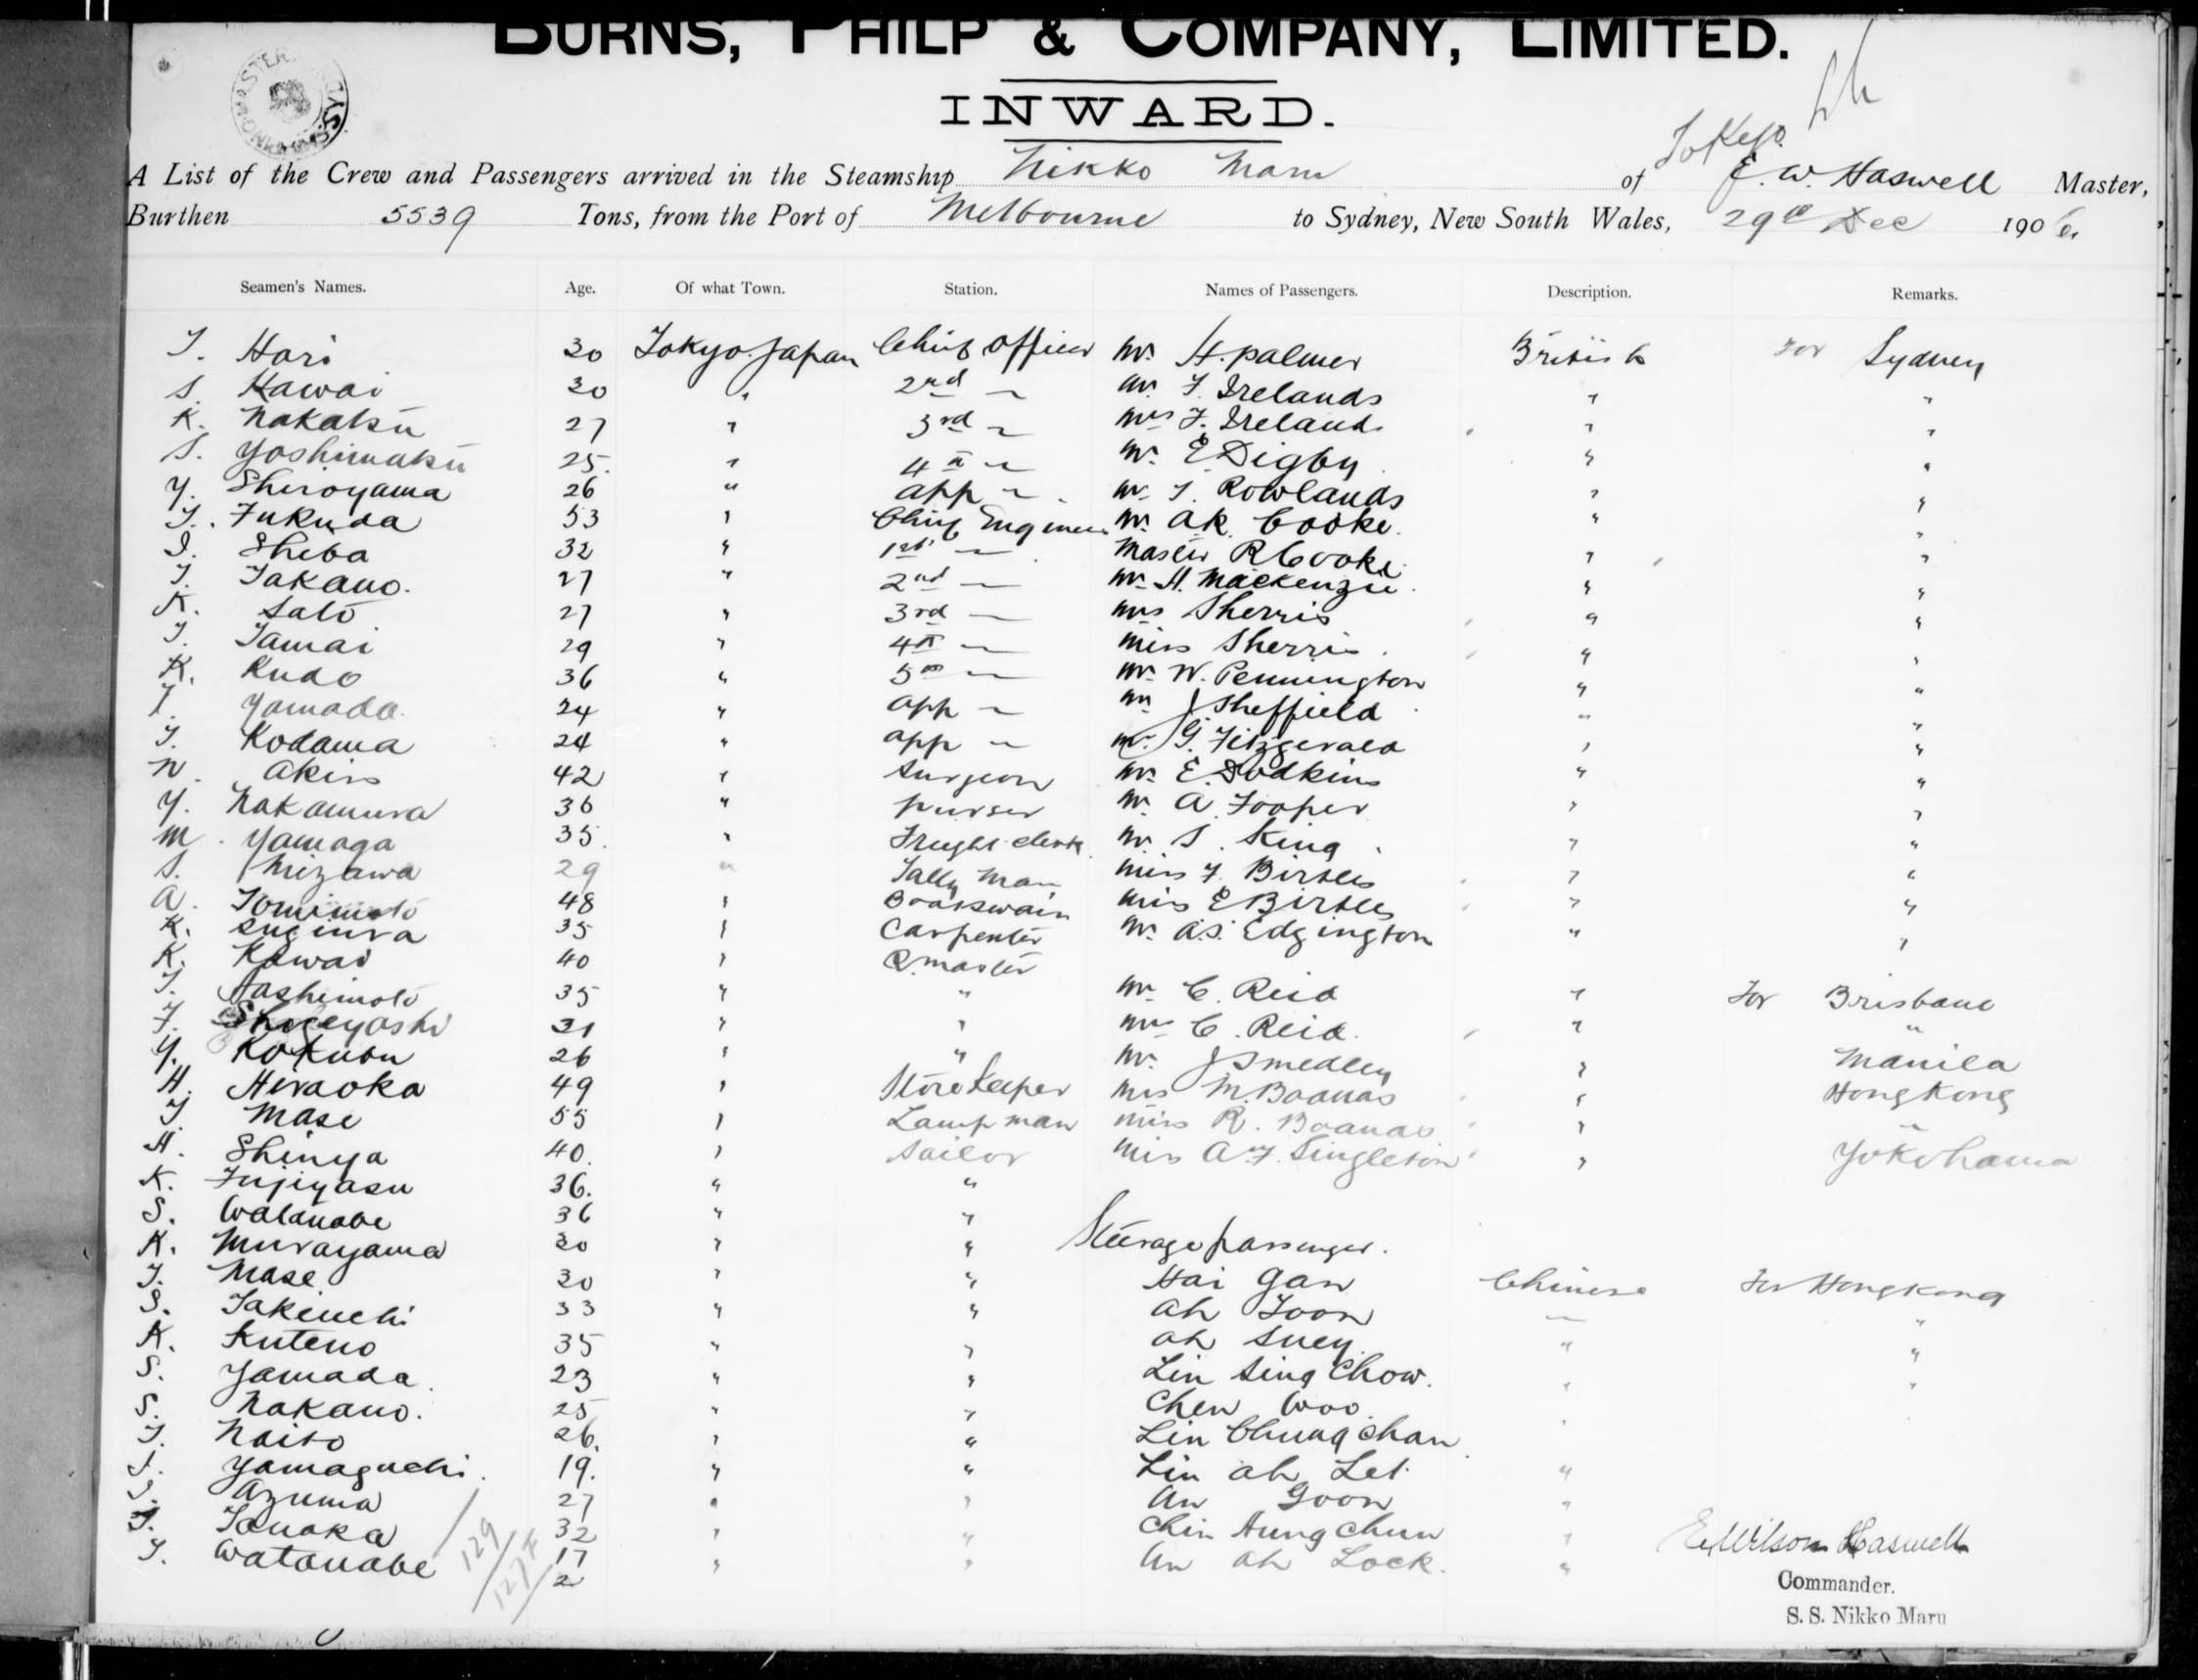 BURNS, PHILP & COMPANY, LIMITED.
INWARD.
Tokyo
A List of the Crew and Passengers arrived in the Steamship Nikko Maru of E. W. Haswell Master,
Burthen 5539 Tons, from the Port of Melbourne to Sydney, New South Wales, 29th Dec 1906.
Seamen's Names. Age. Of what Town. Station. Names of Passengers. Description. Remarks.
T. Hori 30 Tokyo Japan Chief Officer Mr. H. Palmer British For Sydney
S. Kawai 30 " 2nd ~ Mr. F. Irelands " "
K. Nakaku 27 " 3rd ~ Mrs F. Ireland " "
S. Yoshimaku 25. " 4th ~ Mr. E Digby " "
Y. Shiroyama 26 " app ~ Mr. T. Rowlands " "
Fukuda 53 " Chief Engineer Mr. A K. Cooke. " "
Sheba 32 " 1st ~ Master R Cooke " "
T. Takano. 27 " 2nd ~ Mr. H. Mackenzie " "
K. Sato 27 " 3rd ~ Mrs Sherris " "
T. Tamai 29 " 4th ~ Miss Sherris " "
K. Kudo 36 " 5th ~ Mr. W. Pennington " "
Yamada 24 " app ~ Mr J Sheffield " "
T. Kodama 24 " app ~ Mr. G. Fitzgerald " "
N. 42 " Surgeon Mr. E. Dodkins " "
Y. Nakamura 36 " Purser Mr. A. Fooper " "
M. Yamaga 35. " Freight clerk Mr. S. King " "
S. Mizawa 29 " Tally Man Miss F. Birtles " "
A. Tomimoto 48 " Boatswain Miss E Birtles " "
K. Sugiura 35 " Carpenter Mr. A.S. Edgington " "
K. Kawai 40 " Q. master
T. Hashimoto 35 " " Mr C. Reid " For Brisbane
Shigeyoshi 31 " " Mrs C. Reid. " "
Y. Kokubu 26 " " Mr. J Smedley " Manila
H. Hiraoka 49 " Storekeeper Mrs M. Boanas " HongKong
T. Mase 55 " Lampman Miss R. Boanas " "
H. Shinya 40. " Sailor Miss A. F. Singleton " Yokohama
K. Fujiyasu 36. " "
S. Watanabe 36 " "
K. Murayama 30 " " Steerage passenger.
T. Mase 30 " " Hai Gan Chinese For HongKong
S. Takeuchi 33 " " Ah Toon " "
K. Kuteno 35 " " Ah Suey " "
S. Yamada. 23 " " Lin Sing Chow. " "
S. Nakano. 25 " " Chen Woo "
T. Naito 26. " " Lin Chung Chan
Yamaguchi. 19. " " Lin Ah Let "
Azuma 27 " " An Goon "
Tanaka 32 " " Chin Hung Chun "
Watanabe 17 " " An Ah Lock. "
129
2
E. Wilson Haswell
Commander.
S. S. Nikko Maru